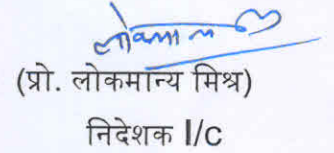 (प्रो. लोकमान्य मिश्र)
निदेशक I/c